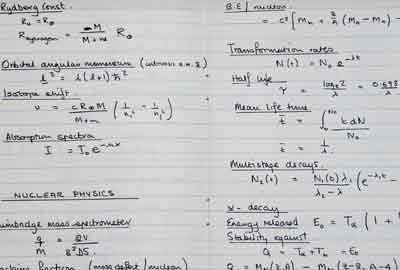 Rydberg Const.
R∞ = R∞
R_Hydrogen = M / (M + m) R∞
Orbital angular momentum
l² = l(l+1) ħ²
Isotope shift
υ = c R∞ M / (M + m) (1/n₁² - 1/n₂²)
Absorption spectra
I = I₀ e^(-nx)
NUCLEAR PHYSICS
Bainbridge mass spectrometer
q/M = 2V / B²DS
fraction (mass defect / nucleon)
B.E / nucleon
= c² [Mn + Z/A (MH - Mn) -
Transformation rates
N(t) = N₀ e^(-λt)
Half life
τ = log e 2 / λ = 0.693 / λ
Mean life time
t̄ = ∫₀^N₀ t dN / N₀
t̄ = 1/λ
Multistage decays.
N₂(t) = N₁(0) λ₁ / (λ₂ - λ₁) (e^(-λ₁t -
α - decay
Energy released E₀ = Tα (1 +
Stability against
Q = Tα + Tb = E₀
Q = M(Z,A) - M(Z-2, A-4)